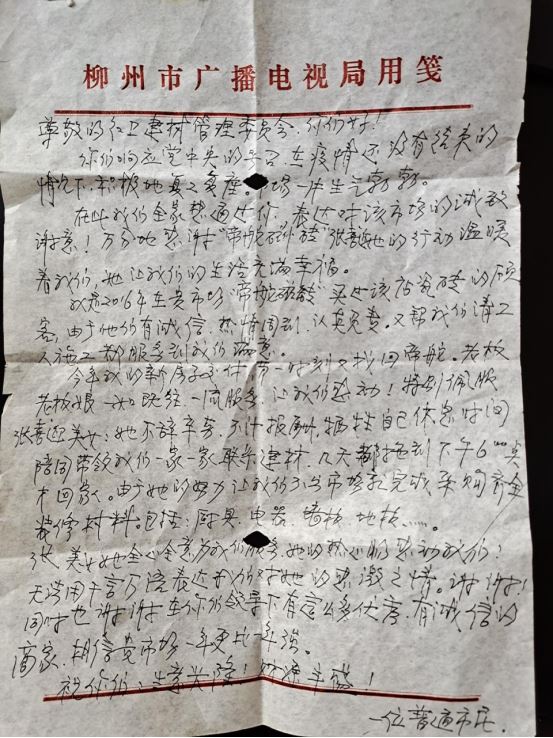 柳州市广播电视局用笺
尊敬的红卫建材管理委员会：你们好！
你们响应党中央的号召，在疫情还没有结束的
情况下，积极地复工复产。市场一片生气勃勃。
在此我们全家想通过你，表达对该市场的诚挚
谢意！万分地感谢“帝舵磁砖”张喜她的行动温暖
着我们，她让我们的生活充满幸福。
我是2016年在贵市场“帝舵磁砖”买过该店瓷砖的顾
客，由于他们有诚信，热情周到，认真负责。又帮我们请工
人施工都服务到我们满意。
今年我的新房子交付第一时刻又找回帝舵。老板
老板娘一如既往一同服务，让我们感动！特别佩服
张喜美女：她不辞辛劳，不计报酬，牺牲自己休息时间
陪同带领我们一家一家联系建材，几天都拖到下午6点
才回家。由于她的努力让我们在贵市场就完成采购齐全
装修材料：包括：厨具、电器、墙板、地板……。
张美女她全心全意为我们服务，她的热心肠感动我们！
无法用千言万语表达我们对她的感激之情。谢谢！
同时也谢谢在你们领导下有这么多优秀，有诚信的
商家，相信贵市场一年更比一年强。
祝你们：生意兴隆！财源丰盛！
一位普通市民